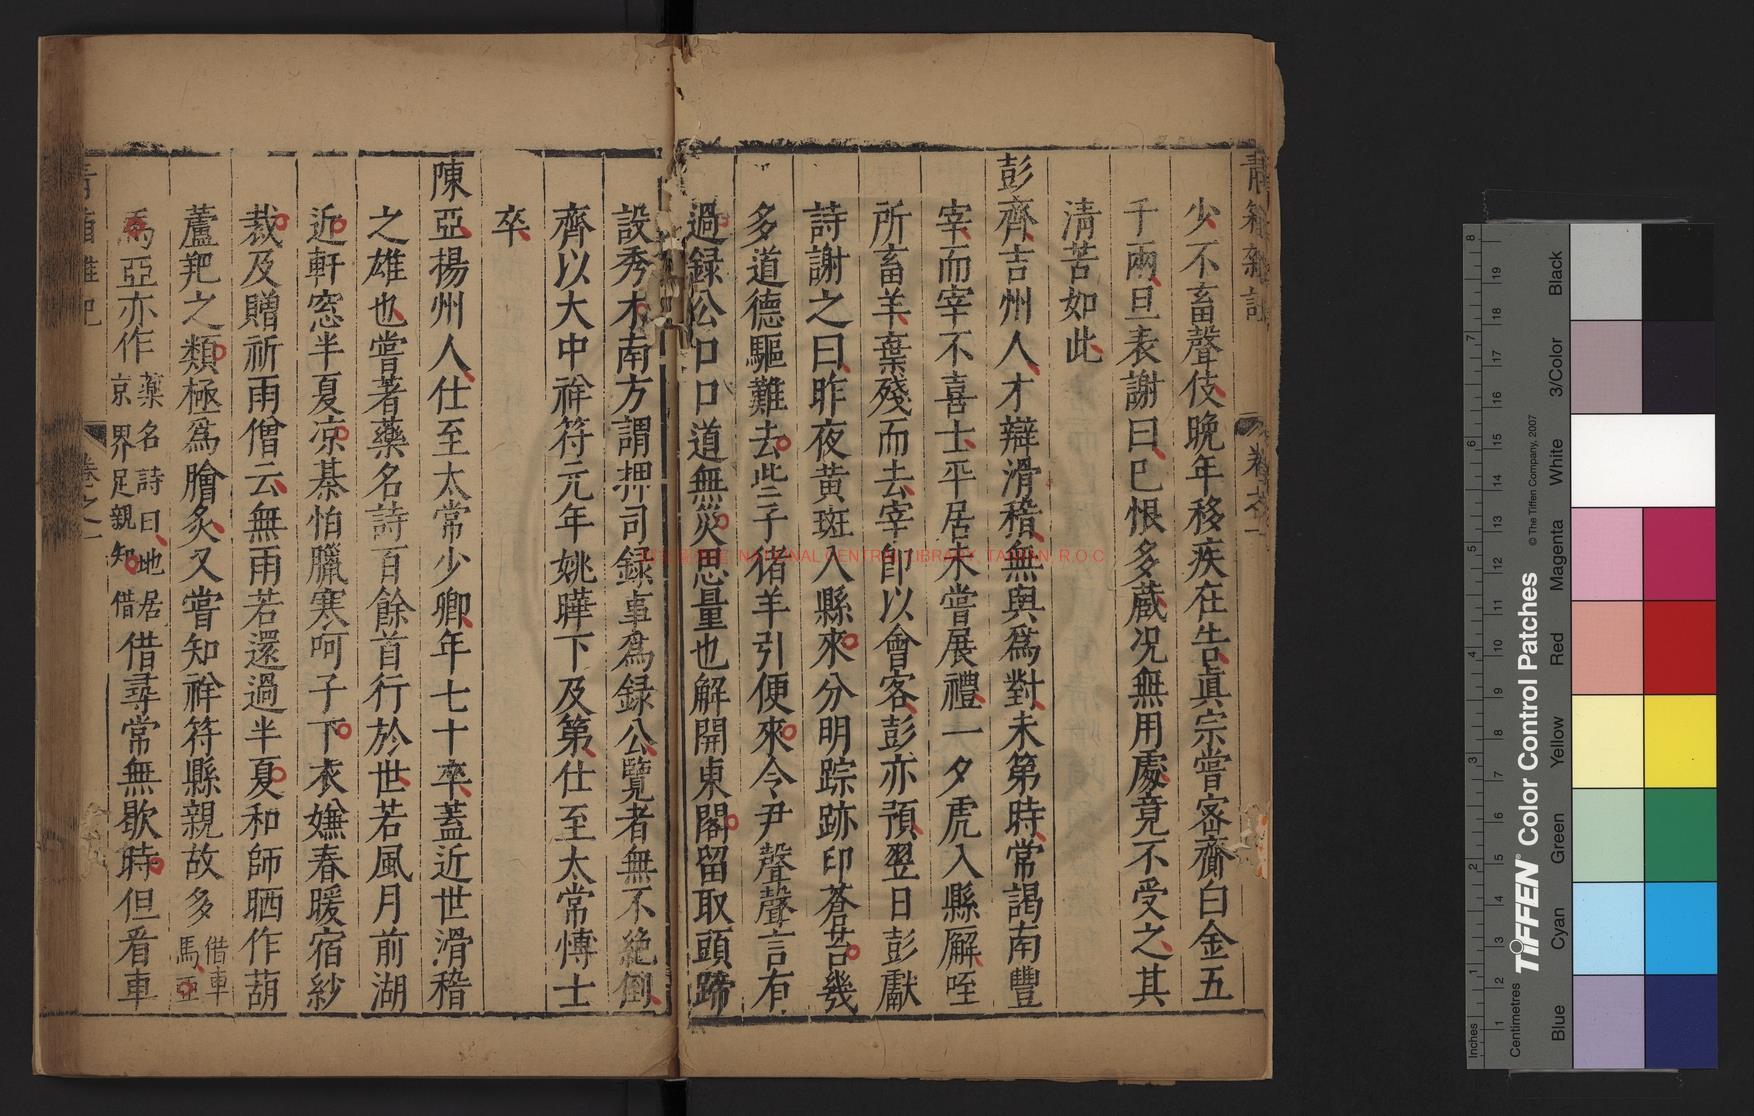 青箱雜記 卷之一
少不畜聲伎晚年移疾在告真宗嘗密齎白金五
千兩且表謝曰已恨多藏况無用處竟不受之其
清苦如此
彭齊吉州人才辯滑稽無與爲對未第時常謁南豐
宰而宰不喜士平居未嘗展禮一夕虎入縣廨咥
所畜羊棄殘而去宰即以會客彭亦預翌日彭獻
詩謝之曰昨夜黃斑入縣來分明踪跡印蒼苔幾
多道德驅難去些子猪羊引便來令尹聲聲言有
過録公口口道無災思量也解開東閣留取頭蹄
設秀才南方謂押司録事爲録公覽者無不絶倒
齊以大中祥符元年姚曄下及第仕至太常愽士
卒
陳亞揚州人仕至太常少卿年七十卒蓋近世滑稽
之雄也嘗著藥名詩百餘首行於世若風月前湖
近軒窓半夏凉棊怕臘寒呵子下衣嫌春暖宿紗
裁及贈祈雨僧云無雨若還過半夏和師晒作葫
蘆羓之類極爲膾炙又嘗知祥符縣親故多借車馬亞
亞亦作藥名詩曰地居京界足親知借借尋常無歇時但看車
青箱雜記 卷之一
NATIONAL CENTRAL LIBRARY, TAIWAN, R.O.C
TIFFEN Color Control Patches
© The Tiffen Company, 2007
Centimetres
Inches
Blue
Cyan
Green
Yellow
Red
Magenta
White
3/Color
Black